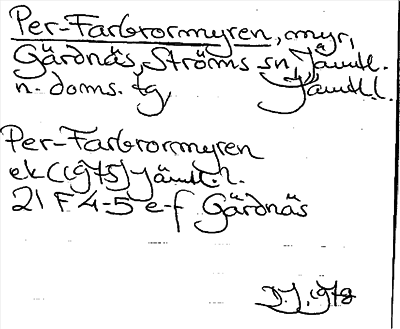 Per-Farbrormyren, myr,
Gärdnäs, Ströms sn, Jämtl.
n. doms. tg, Jämtl. l.
Per-Farbrormyren
ek (1975) Jämtl. l.
21 F 4-5 e-f Gärdnäs
D.J. 1978